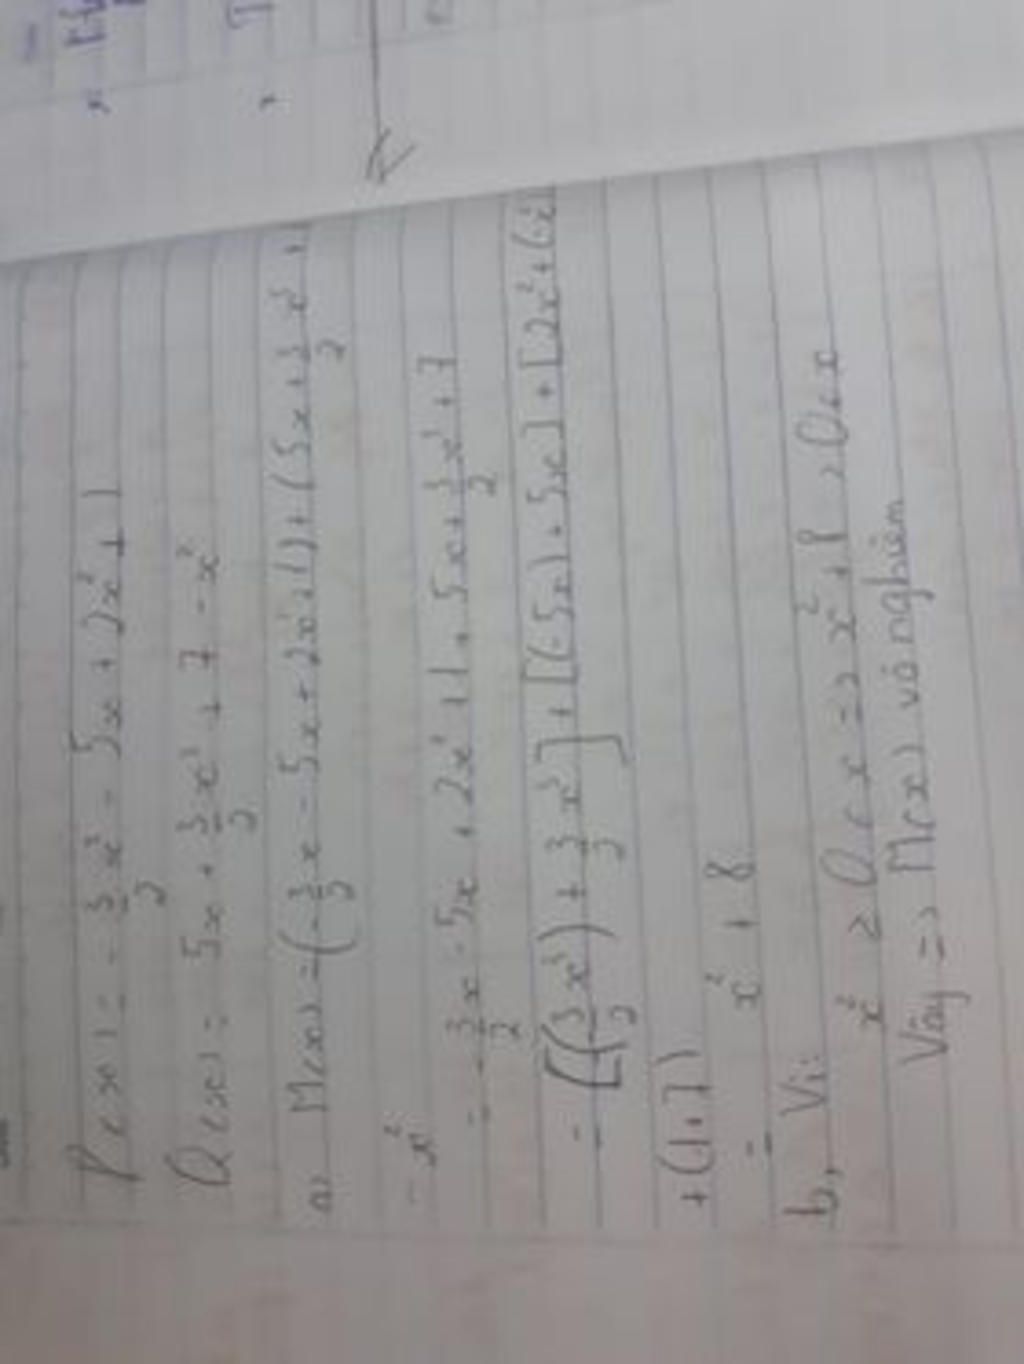 P(x) = -3/2 x³ - 5x + 2x² + 1
Q(x) = 5x + 3/2 x³ + 7 - x²
a) M(x) = (-3/2 x - 5x + 2x² + 1) + (5x + 3/2 x³ +
- x²
= -3/2 x - 5x + 2x² + 1 + 5x + 3/2 x³ + 7
= [(-3/2 x³) + 3/2 x³] + [(-5x) + 5x] + [2x² + (x²
+ (1+7)
= x² + 8
b, Vì:
x² ≥ 0 ∀ x => x² + 8 > 0 ∀ x
Vậy => M(x) vô nghiệm